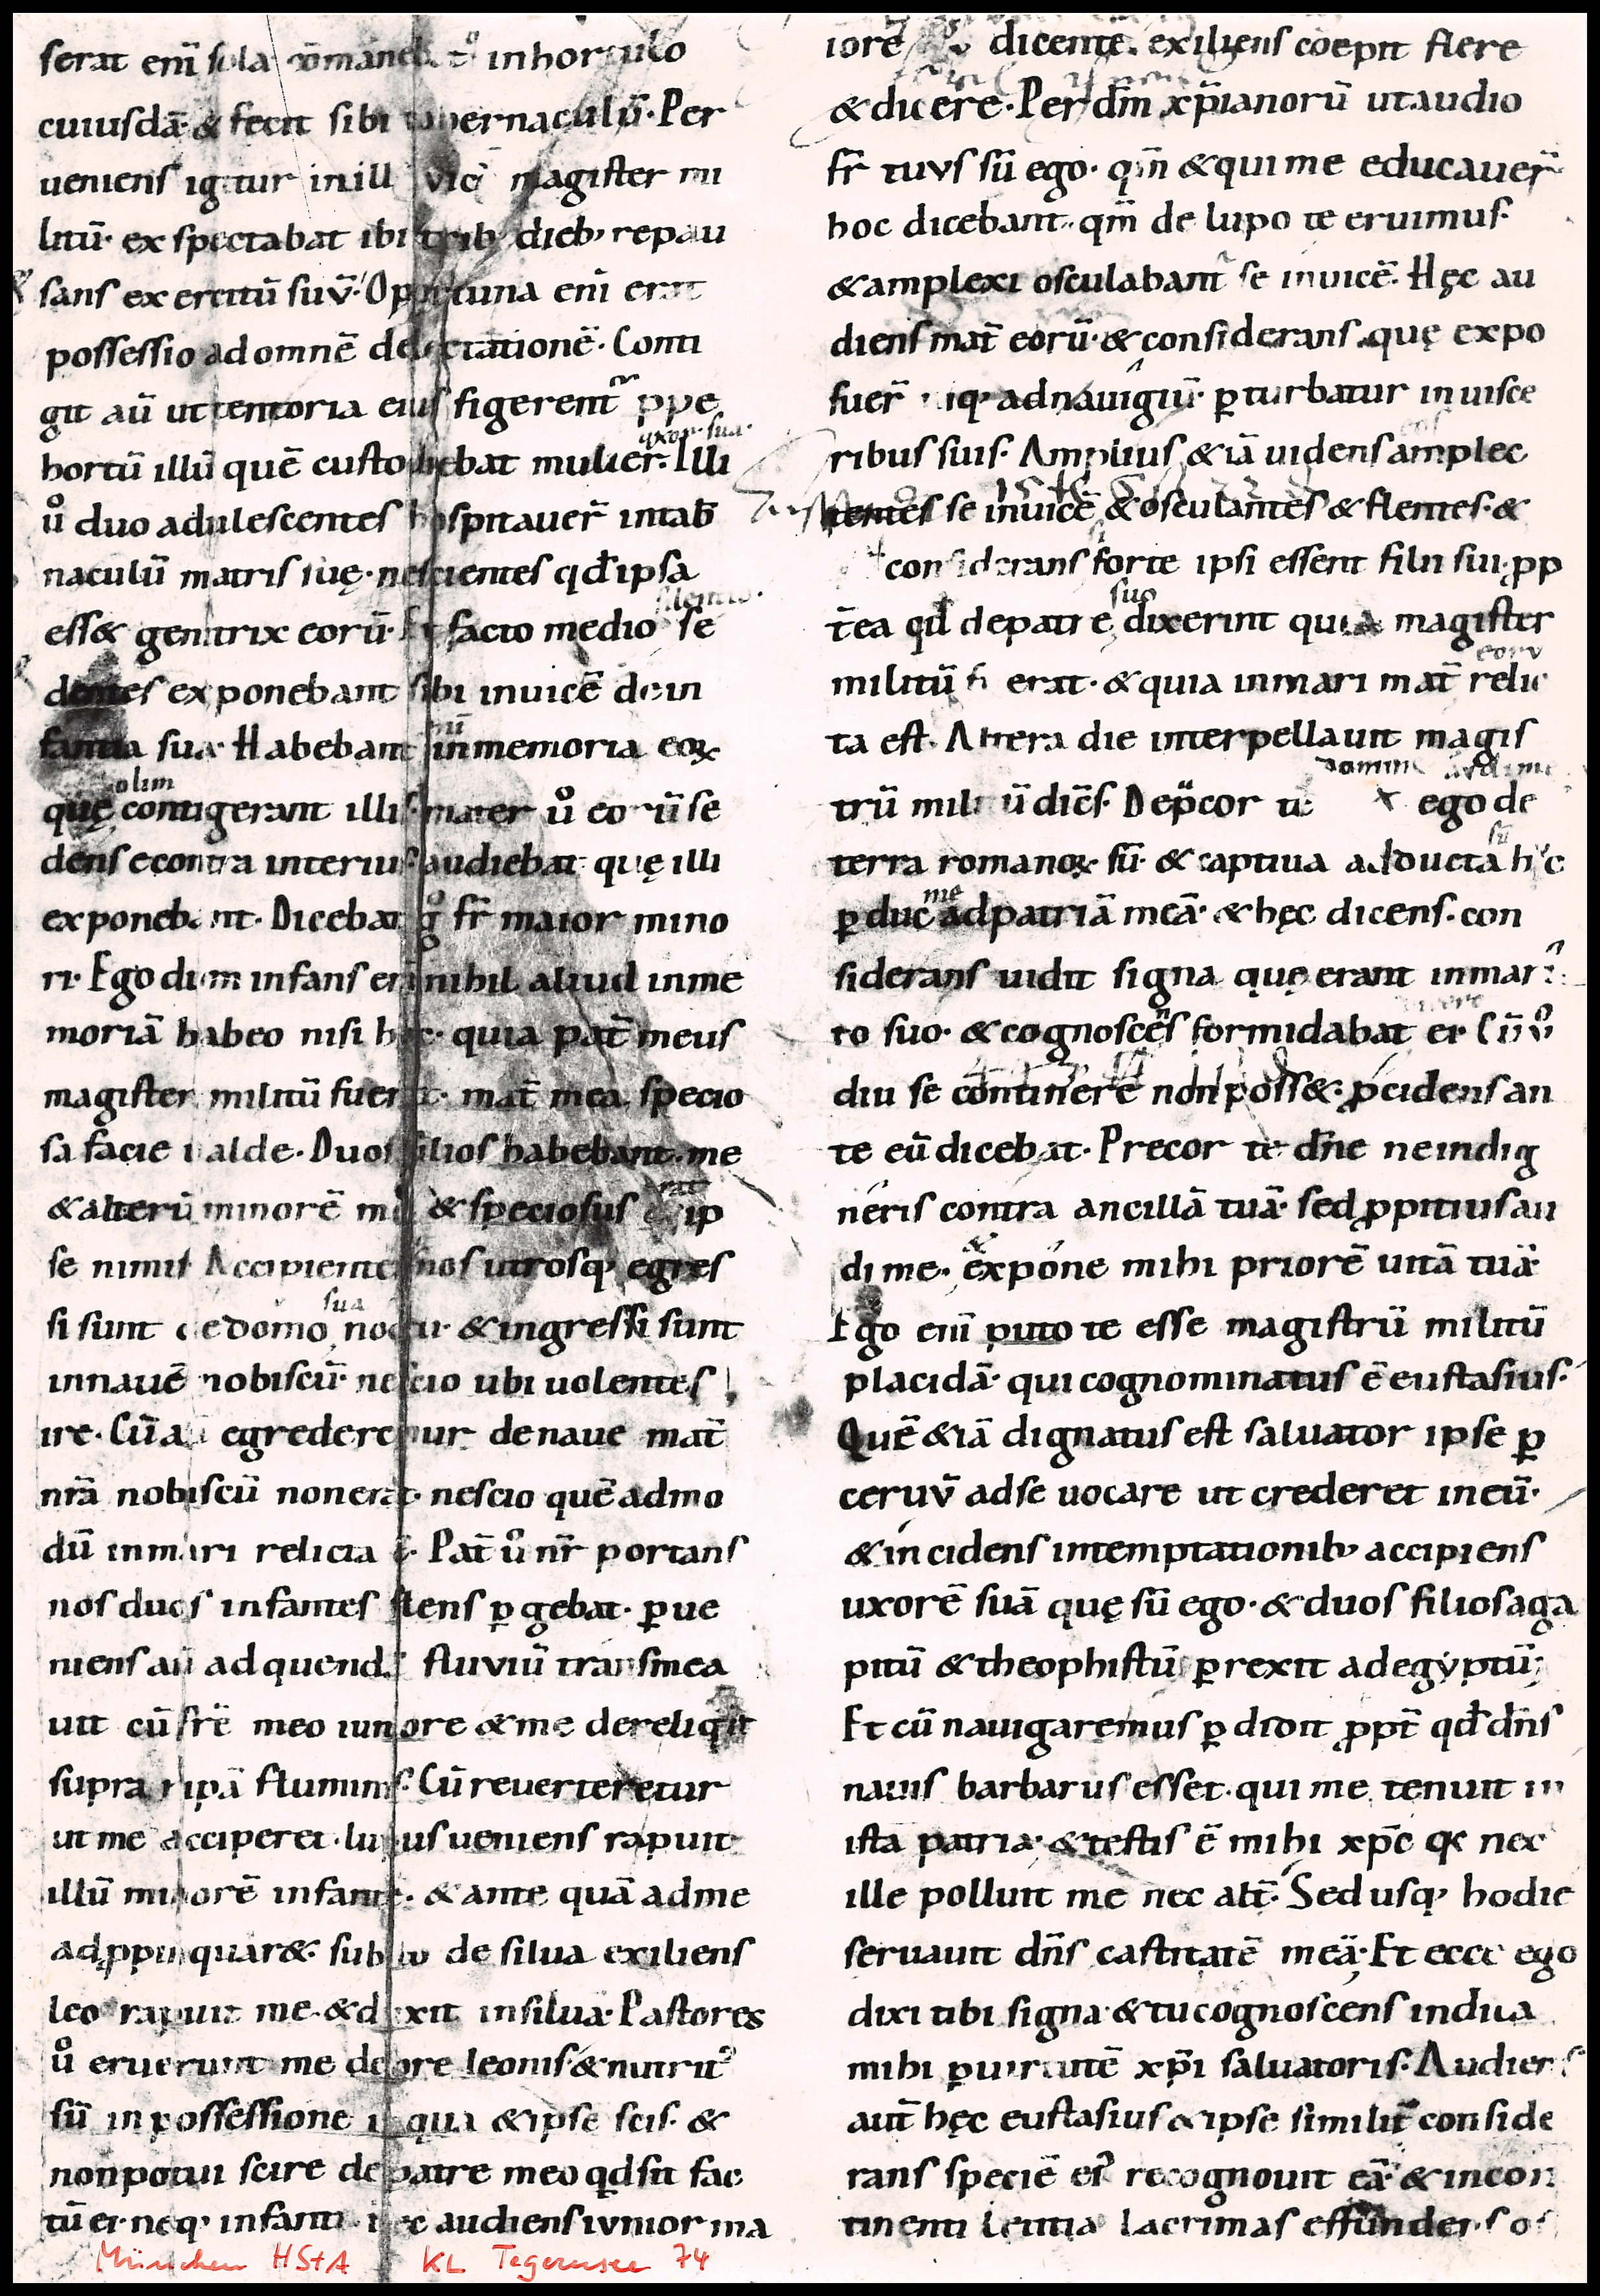 serat enī sola inhortulo
cuiusdā· & fecit sibi tabernaculū· Per
ueniens igitur inill vicū magister mi
litū· exspectabat ibi trib; dieb; repau
sans exercitū suv̄· Oportuna enī erat
possessio adomnē delectationē· Conti
git aū uttentoria eius figerent̄ ꝓpe
uxor sua·
hortū illū quē custodiebat mulier· Illi
uͦ duo adulescentes hospitauer̄ intab̄
naculū matris suę· nescientes qđ ipsa
silentio·
ess& genitrix eorū· Et facto medio se
dentes exponebant sibi inuicē dein
fantia sua· Habebant inmemoria eoꝝ
olim
quę contigerant illis· mater uͦ eorū se
dens econtra interius· audiebat quę illi
exponebant· Dicebat gͦ fr̄ maior mino
ri· Ego dum infans erā nihil aliud inme
moriā habeo nisi hoc· quia pat̄ meus
magister militū fuerat· mat̄ mea specio
sa facie ualde· Duos filios habebant· me
& alterū minorē me & speciosus ip
se nimis Accipientes nos utrosq; egres
sua
si sunt dedomo noctu· & ingressi sunt
innauē nobiscū· nescio ubi uolentes
ire· Cū aū egrederemur denaue mat̄
nr̄a nobiscū nonerat· nescio quē admo
dū inmari relicta ē· Pat̄ uͦ nr̄ portans
nos duos infantes flens ꝑgebat· ꝑue
niens aū adquendā fluviū transmea
uit cū fr̄e meo iuniore & me dereliquit
supra ripā fluminis· Cū reuerteretur
ut me acciperet· lupus ueniens rapuit
illū minorē infante· & ante quā adme
adꝓpinquar& subito de silua exiliens
leo rapuit me· & duxit insilua· Pastores
uͦ eruerunt me deore leonis· & nutrit᷒
sū inpossessione in qua & ipse scis· &
nonpotui scire depatre meo qđ sit fac
tū ei· neq; infanti· Hęc audiens iunior ma
iore dicente· exiliens coepit flere
& dicere· Per dm̄ xp̄ianorū utaudio
fr̄ tuvs sū ego· qm̄ & quime educauer̄
hoc dicebant· qm̄ de lupo te eruimus·
& amplexi osculabant̄ se inuicē· Hęc au
diens mat̄ eorū· & considerans quę expo
suer̄ usq; adnauigiū· ꝑturbatur inuisce
ribus suis· Amplius & iā uidens amplec
tentes se inuicē & osculantes & flentes· &
considerans forte ipsi essent filii sui· ꝓp
suo
t̄ea qđ depatre dixerint quia magister
eorv
militū erat· & quia inmari mat̄ relic
ta est· Altera die interpellauit magis
trū militū diēs· Dep̄cor te ego de
sū
terra romanoꝝ sū· & captiua adducta hᵃc
me
ꝑduc adpatriā meā· & hęc dicens· con
siderans uidit signa quę erant inmari
to suo· & cognoscēs formidabat ei· Cū uͦ
diu se continere nonposs&· ꝓcidens an
te eū dicebat· Precor te dn̄e neindig
neris contra ancillā tuā· sed ꝓpitius au
&
di me· expone mihi priorē uitā tuā·
Ego enī puto te esse magistrū militū
placidā· qui cognominatus ē eustasius·
Quē & iā dignatus est saluator ipse ꝑ
ceruv̄ adse uocare ut crederet ineū·
& incidens intemptationib; accipiens
uxorē suā quę sū ego· & duos filios aga
pitū & theophistū ꝑrexit adegyptū·
Et cū nauigaremus ꝑdidit ꝓpt̄ qđ dn̄s
nauis barbarus esset· qui me tenuit in
ista patria· & testis ē mihi xp̄c qͣ nec
ille polluit me nec alt̄· Sed usq; hodie
seruauit dn̄s castitatē meā· Et ecce ego
dixi tibi signa· & tu cognoscens indica
mihi ꝑuirtutē xp̄i saluatoris· Audiens
aut̄ hęc eustasius & ipse similit̄ conside
rans speciē ei᷒ recognouit eā· & incon
tinenti letitia lacrimas effundens os
München HStA KL Tegernsee 74